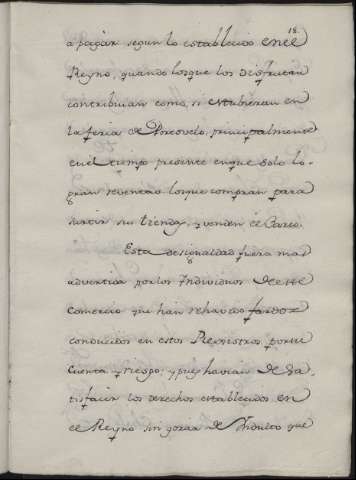 18.
a pagar segun lo establecido en el
Reyno, quando los que los disfrutan
contribuian como, si estubieran en
la feria de Portovelo, principalmente
en el tiempo presente en que solo lo-
gran reventa los que compran para
surtir sus tiendas, y venden el Vareo.
Esta desigualdad fuera mas
advertida por los Individuos de este
Comercio que han rehusado fardos
conducidos en estos Rexistros por su
cuenta y riesgo; y pues havian de sa-
tisfacer los derechos establecidos en
el Reyno sin gozar de Indulto que